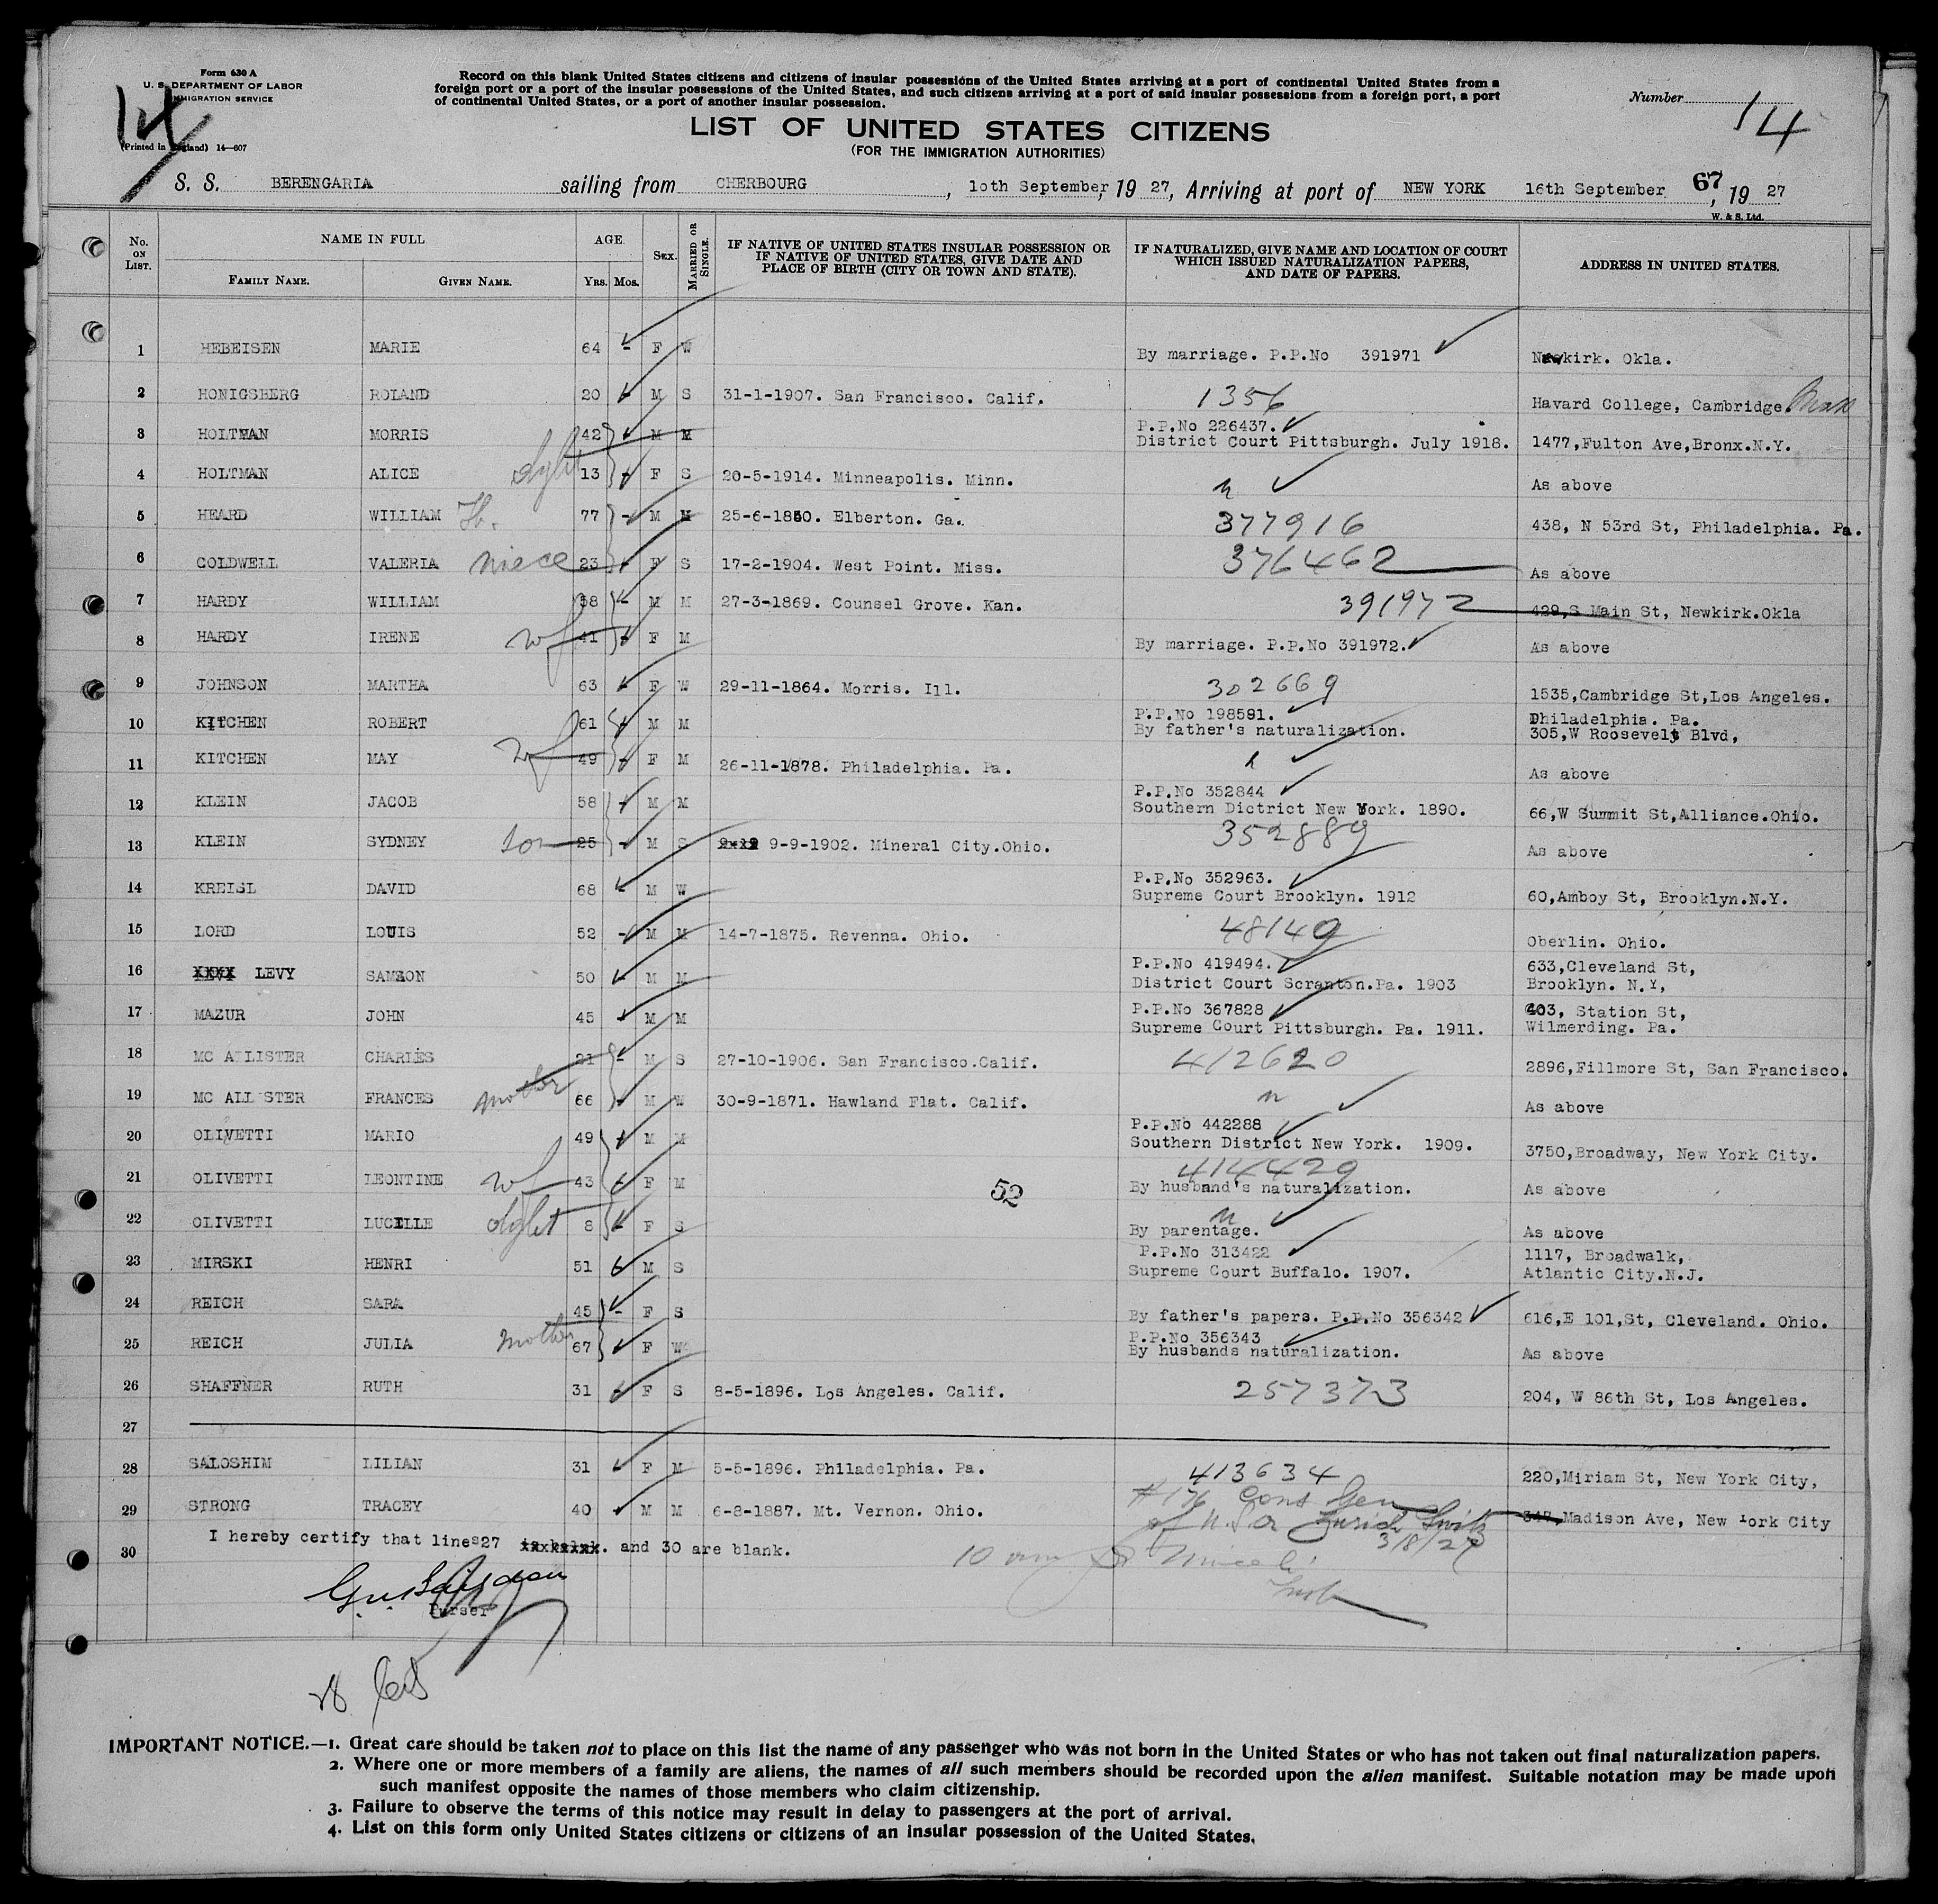 Form 630 A
U. S. DEPARTMENT OF LABOR
IMMIGRATION SERVICE
(Printed in England) 14—607
14
Record on this blank United States citizens and citizens of insular possessions of the United States arriving at a port of continental United States from a
foreign port or a port of the insular possessions of the United States, and such citizens arriving at a port of said insular possessions from a foreign port, a port
of continental United States, or a port of another insular possession.
Number 14
LIST OF UNITED STATES CITIZENS
(FOR THE IMMIGRATION AUTHORITIES)
S. S. BERENGARIA sailing from CHERBOURG, 10th September, 1927, Arriving at port of NEW YORK 16th September 67, 1927
W. & S. Ltd.
No. ON LIST. NAME IN FULL AGE SEX. MARRIED OR SINGLE. IF NATIVE OF UNITED STATES INSULAR POSSESSION OR IF NATIVE OF UNITED STATES, GIVE DATE AND PLACE OF BIRTH (CITY OR TOWN AND STATE). IF NATURALIZED, GIVE NAME AND LOCATION OF COURT WHICH ISSUED NATURALIZATION PAPERS, AND DATE OF PAPERS. ADDRESS IN UNITED STATES.
FAMILY NAME. GIVEN NAME. YRS. MOS.
1 HEBEISEN MARIE 64 - F W By marriage. P.P.No 391971 Newkirk. Okla.
2 HONIGSBERG ROLAND 20 - M S 31-1-1907. San Francisco. Calif. 1356 Havard College, Cambridge Mass
3 HOLTMAN MORRIS 42 - M M P.P.No 226437. District Court Pittsburgh. July 1918. 1477,Fulton Ave,Bronx.N.Y.
4 HOLTMAN ALICE dght 13 - F S 20-5-1914. Minneapolis. Minn. n As above
5 HEARD WILLIAM H. 77 - M M 25-6-1850. Elberton. Ga. 377916 438, N 53rd St, Philadelphia. Pa.
6 COLDWELL VALERIA niece 23 - F S 17-2-1904. West Point. Miss. 376462 As above
7 HARDY WILLIAM 58 - M M 27-3-1869. Counsel Grove. Kan. 391972 429,S Main St, Newkirk.Okla
8 HARDY IRENE wf 41 - F M By marriage. P.P.No 391972. As above
9 JOHNSON MARTHA 63 - F W 29-11-1864. Morris. Ill. 302669 1535,Cambridge St,Los Angeles.
10 KITCHEN ROBERT 61 - M M P.P.No 198591. By father's naturalization. Philadelphia. Pa. 305,W Roosevelt Blvd,
11 KITCHEN MAY wf 49 - F M 26-11-1878. Philadelphia. Pa. n As above
12 KLEIN JACOB 58 - M M P.P.No 352844 Southern Dictrict New York. 1890. 66,W Summit St,Alliance.Ohio.
13 KLEIN SYDNEY son 25 - M S 9-9-1902. Mineral City.Ohio. 352889 As above
14 KREISL DAVID 68 - M W P.P.No 352963. Supreme Court Brooklyn. 1912 60,Amboy St, Brooklyn.N.Y.
15 LORD LOUIS 52 - M M 14-7-1875. Revenna. Ohio. 48149 Oberlin. Ohio.
16 LEVY SAMSON 50 - M M P.P.No 419494. District Court Scranton.Pa. 1903 633,Cleveland St, Brooklyn. N.Y,
17 MAZUR JOHN 45 - M M P.P.No 367828 Supreme Court Pittsburgh. Pa. 1911. 403, Station St, Wilmerding. Pa.
18 MC ALLISTER CHARLES 21 - M S 27-10-1906. San Francisco.Calif. 412620 2896,Fillmore St, San Francisco.
19 MC ALLISTER FRANCES mother 66 - M W 30-9-1871. Hawland Flat. Calif. n As above
20 OLIVETTI MARIO 49 - M M P.P.No 442288 Southern District New York. 1909. 3750,Broadway, New York City.
21 OLIVETTI LEONTINE wf 43 - F M 414429 By husband's naturalization. As above
22 OLIVETTI LUCILLE dght 8 - F S n By parentage. As above
52
23 MIRSKI HENRI 51 - M S P.P.No 313422 Supreme Court Buffalo. 1907. 1117, Broadwalk, Atlantic City.N.J.
24 REICH SARA 45 - F S By father's papers. P.P.No 356342 616,E 101,St, Cleveland. Ohio.
25 REICH JULIA mother 67 - F W P.P.No 356343 By husbands naturalization. As above
26 SHAFFNER RUTH 31 - F S 8-5-1896. Los Angeles. Calif. 257373 204, W 86th St, Los Angeles.
27
28 SALOSHIM LILIAN 31 - F M 5-5-1896. Philadelphia. Pa. 413634 220,Miriam St, New York City,
29 STRONG TRACEY 40 - M M 6-8-1887. Mt. Vernon. Ohio. #176 Cons Gen of U.S. Zurich Switz 3/8/27 347,Madison Ave, New York City
30 I hereby certify that lines 27 and 30 are blank.
10
Purser
28
IMPORTANT NOTICE.—1. Great care should be taken not to place on this list the name of any passenger who was not born in the United States or who has not taken out final naturalization papers.
2. Where one or more members of a family are aliens, the names of all such members should be recorded upon the alien manifest. Suitable notation may be made upon
such manifest opposite the names of those members who claim citizenship.
3. Failure to observe the terms of this notice may result in delay to passengers at the port of arrival.
4. List on this form only United States citizens or citizens of an insular possession of the United States.